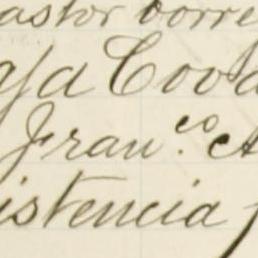 astor corre
ga Cova
Fran.co A
istencia f